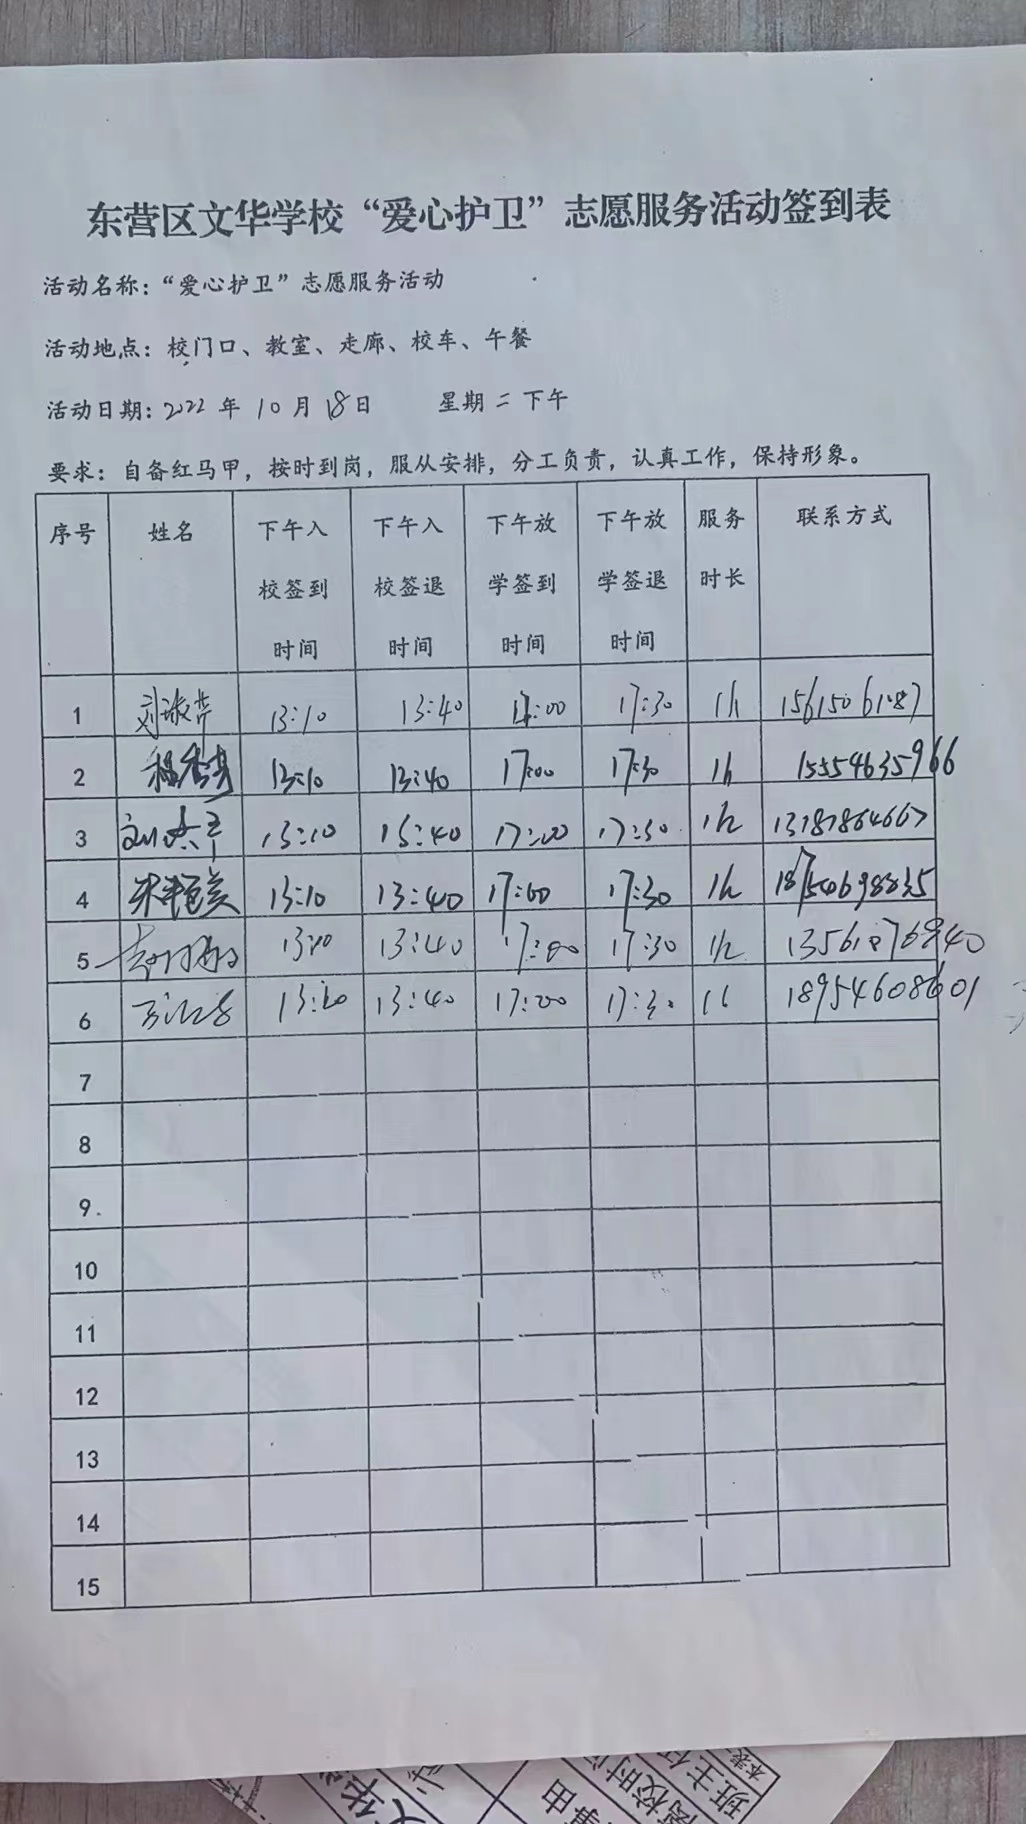 东营区文华学校“爱心护卫”志愿服务活动签到表
活动名称：“爱心护卫”志愿服务活动
活动地点：校门口、教室、走廊、校车、午餐
活动日期：2022 年 10 月 18 日 星期 二 下午
要求：自备红马甲，按时到岗，服从安排，分工负责，认真工作，保持形象。
序号 姓名 下午入校签到时间 下午入校签退时间 下午放学签到时间 下午放学签退时间 服务时长 联系方式
1 13:10 13:40 17:00 17:30 1h 15615061087
2 13:10 13:40 17:00 17:30 1h 15554635966
3 13:10 13:40 17:00 17:30 1h
4 13:10 13:40 17:00 17:30 1h 18754698835
5 13:10 13:40 17:00 17:30 1h
6 13:40 17:00 17:30 18954608601
7
8
9
10
11
12
13
14
15
事由
离校时间
班主任